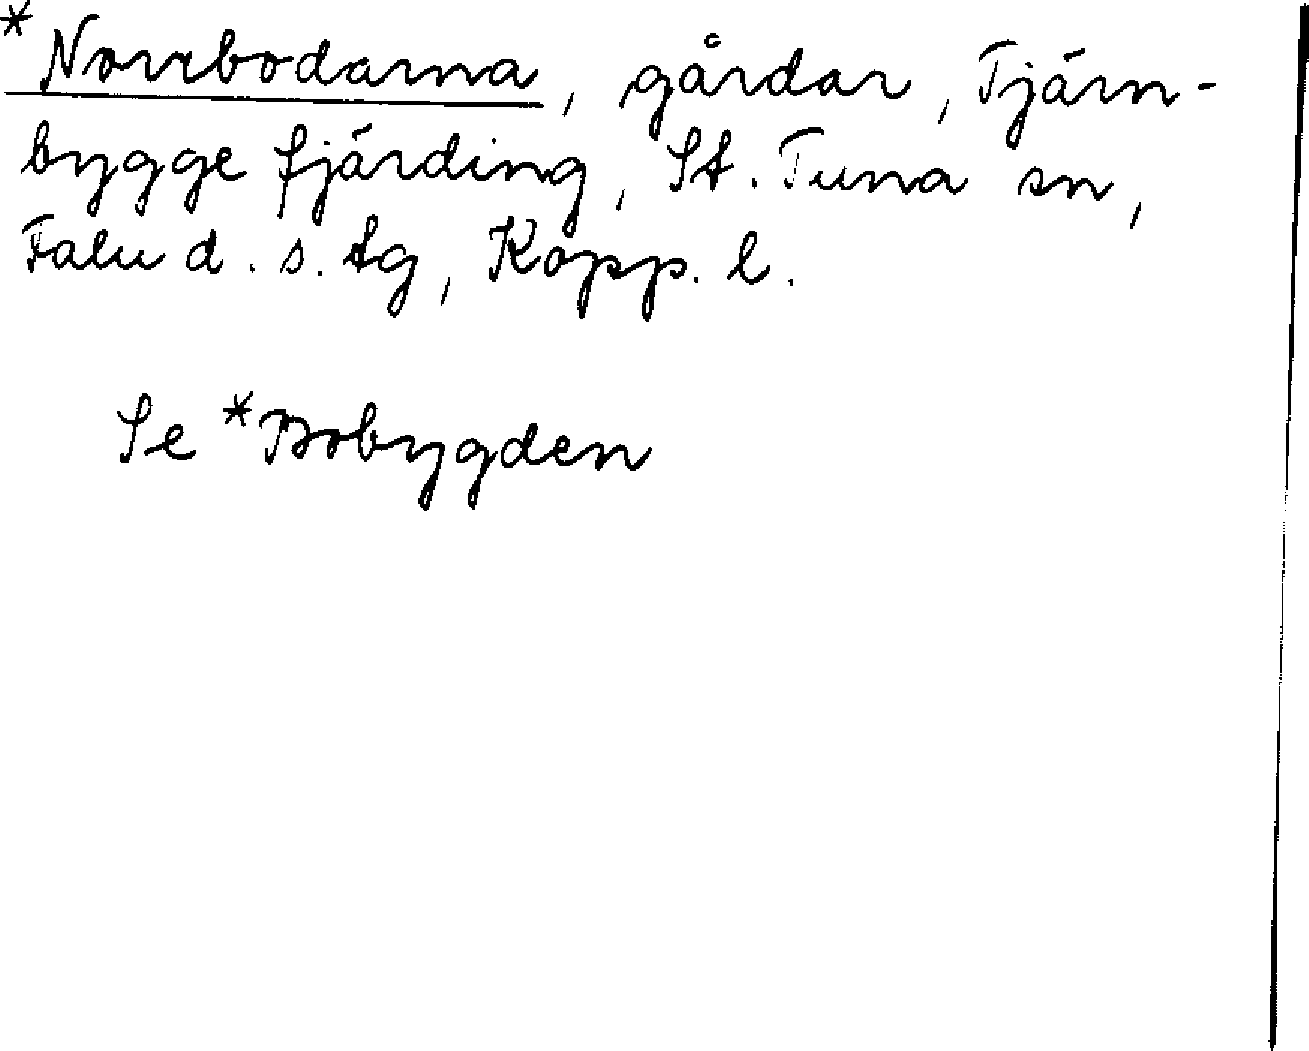 *Norrbodarna, gårdar, Tjärn-
bygge fjärding, St. Tuna sn,
Falu d. s. tg, Kopp. l.
Se *Bobygden